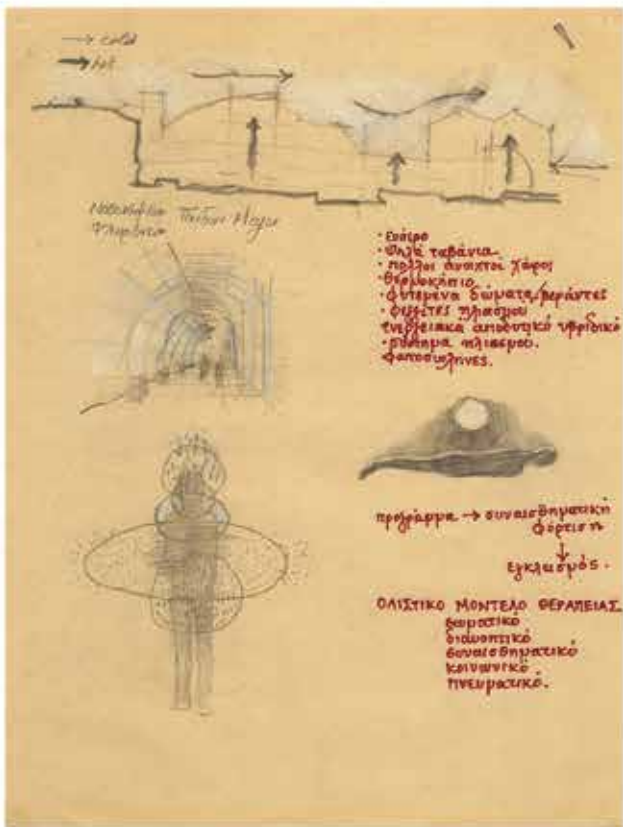 cold
hot
• Εναίρο
• Ψηλά ταβάνια.
• πολλοί ανοιχτοί χώροι
• θερμοκήπιο
• φυτεμένα δώματα/βεράντες
• φεγγίτες ηλιασμού
ενεργειακά αποδοτικό υβριδικό
• σύστημα ηλιασμού.
φωτοσωλήνες.
πρόγραμμα → συναισθηματική
φόρτιση
↓
εγκλωισμός.
ΟΛΙΣΤΙΚΟ ΜΟΝΤΕΛΟ ΘΕΡΑΠΕΙΑΣ.
σωματικό
διανοητικό
συναισθηματικό
κοινωνικό
πνευματικό.